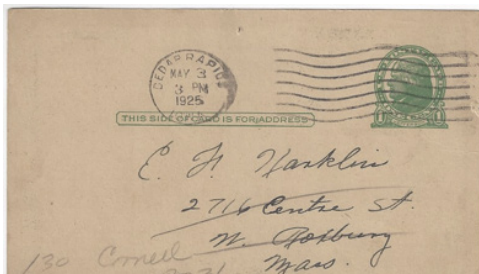 CEDAR RAPIDS
MAY 3
3 PM
1925
THIS SIDE OF CARD IS FOR ADDRESS
1 1
E. H. Harklin
2716 Centre St.
W. Roxbury
Mass.
130 Cornell